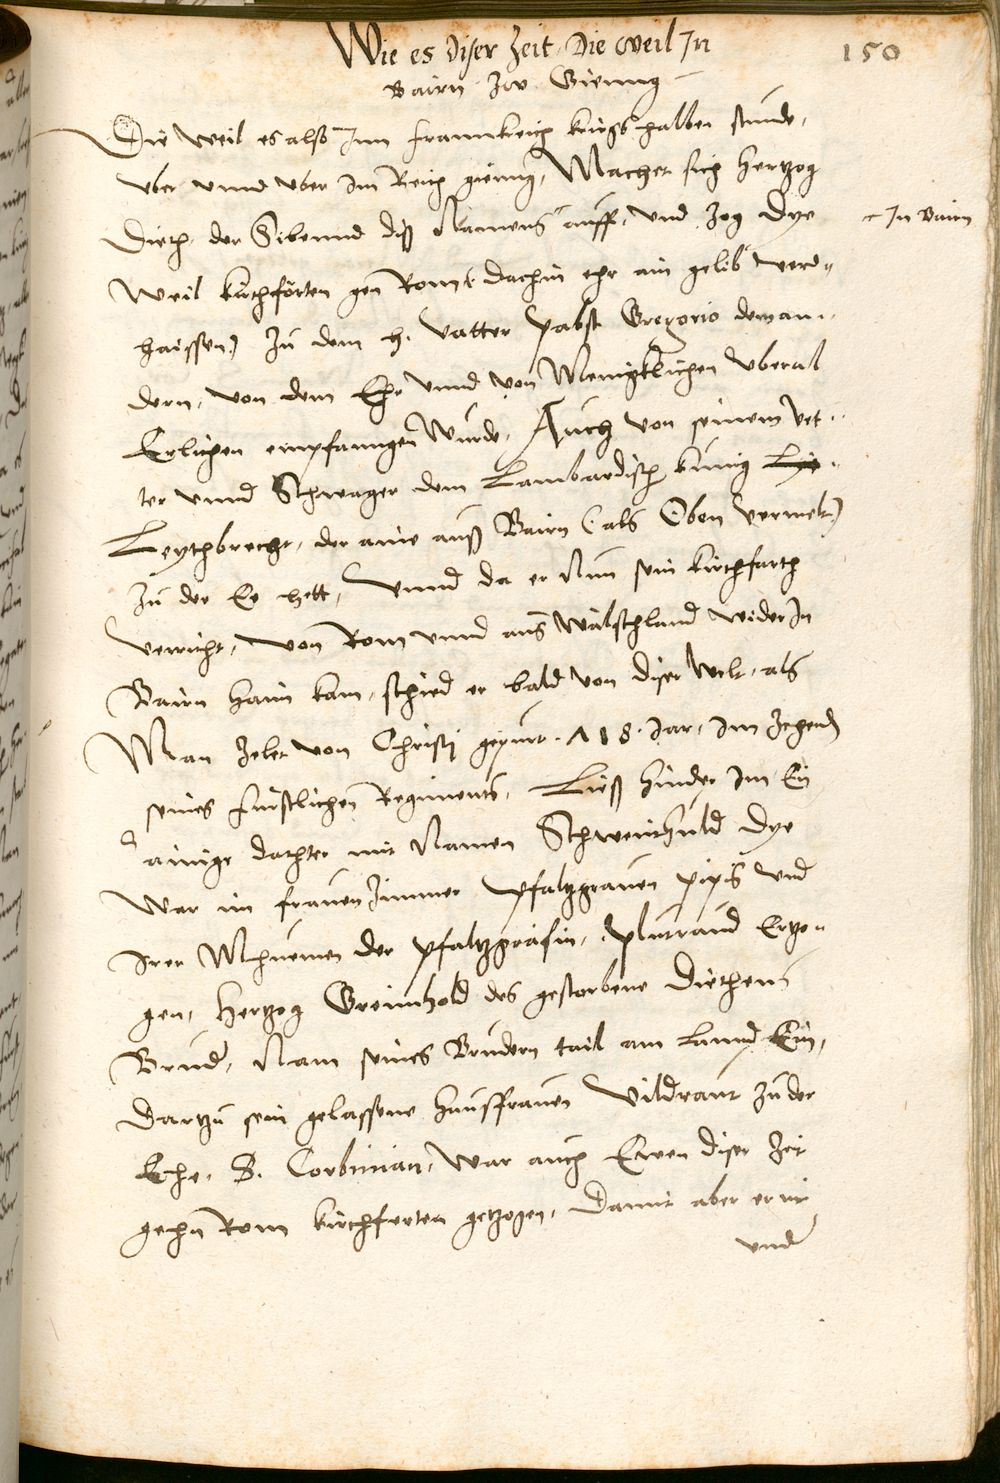 Wie es diser Zeit die weil In
150
Bairn Zw Gienng
Die weil es also Inn Frannkreich kriegs halben stunde,
vber vnnd vber im Reich gienng, Machet sich Hertzog
Dieth der Sibennd diß Namens auff, vnd zog dye
In Bairn
Weil kirchförten gen Rom (dachin ehr ain gelib verd=
haissen) Zu dem h. Vatter Pabst Gregorio dem an=
dern, von dem Ehr vnnd von Menigklichen vberal
Erlichen empfanngen wurde, Auch von seinem Vet=
ter vnnd Schwager dem Lambardisch künig
Leythbrecht, der aine auß Bairn (als Oben vermelt)
zu der Ee hett, vnnd da er Nun sein kirchfarth
verricht, von Rom vnnd aus Wälschland wider In
Bairn haim kam, schied er bald von diser Welt, als
Man zelet von Christj gepurt . 718 . Jar, im Zehend
seines Fürstlichen Regiments, Ließ hinder im Ein
ainige dochter mit Namen Schweinhuld dye
War im frauen Zimmer Pfaltzgrauen Pipis vnd
irer Mhuemen der Pfaltzgräfin, Plutraud Ertzo=
gen, Hertzog Greimhold des gestorbene Diethens
Bruder, Nam seines Brudern tail am Lannd Ein,
dartzu sein gelassene hausfrauen Vildraut zu der
Ehe, S. Corbinian, war auch Ewen diser Zeit
gehn Rom kirchferten getzogen, Damit aber er nit
vnd